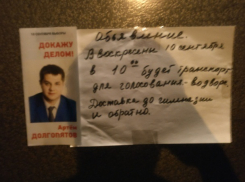 ДОКАЖУ
ДЕЛОМ!
Артём
ДОЛГОПЯТОВ
Объявление.
В воскресенье 10 сентября
в 10 00 будет транспорт
для голосования-подвоз.
Доставка до гимназии
и обратно.